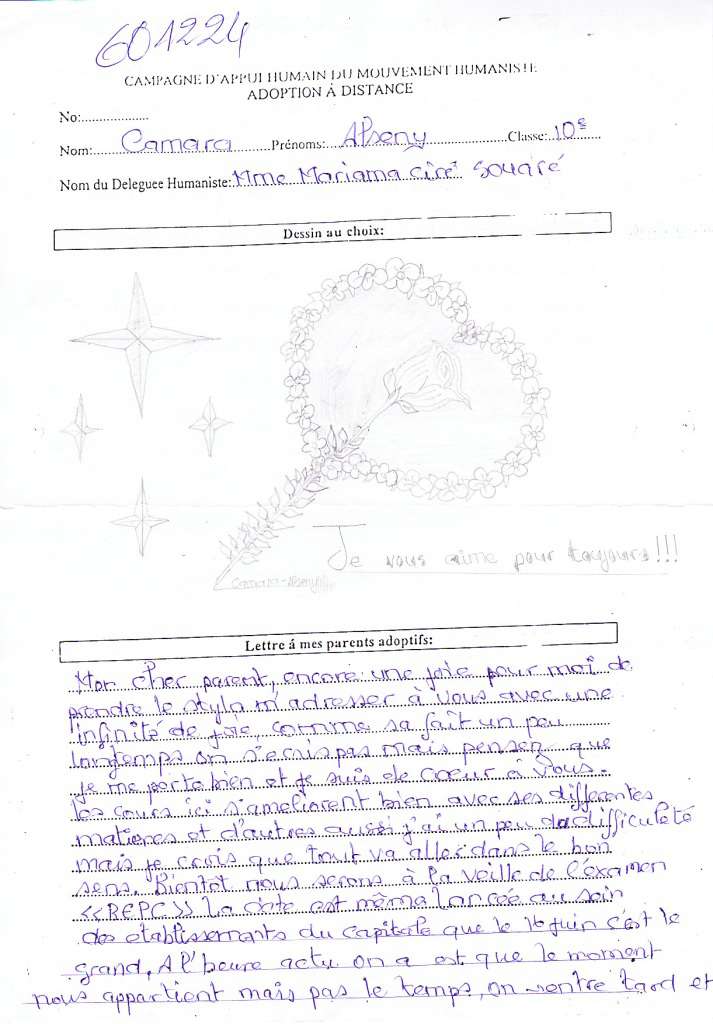 601224
CAMPAGNE D'APPUI HUMAIN DU MOUVEMENT HUMANISTE
ADOPTION Á DISTANCE
No:...................
Nom: Camara Prénoms: Alseny Classe: 10e
Nom du Deleguee Humaniste: Mme Mariama ciré Souaré
Dessin au choix:
Je vous aime pour toujours!!!
Camara-Alseny
Lettre á mes parents adoptifs:
Mon cher parent, encore une joie pour moi de
prendre le stylo m'adresser à vous avec une
infinité de joie, comme sa fait un peu
longtemps on s'ecris pas mais pensen que
je me porte bien et je suis de coeur à vous.
les cours ici s'ameliorent bien avec ses differentes
matieres et d'autres aussi j'ai un peu de difficuleté
mais je crois que tout va aller dans le bon
sens. Bientot nous serons à la veille de l'examen
<<BEPC>> la date est même lancée au sein
des etablissements du capitale que le 16 juin c'est le
grand, A l'heure actu on a est que le moment
nous appartient mais pas le temps, on rentre tard et